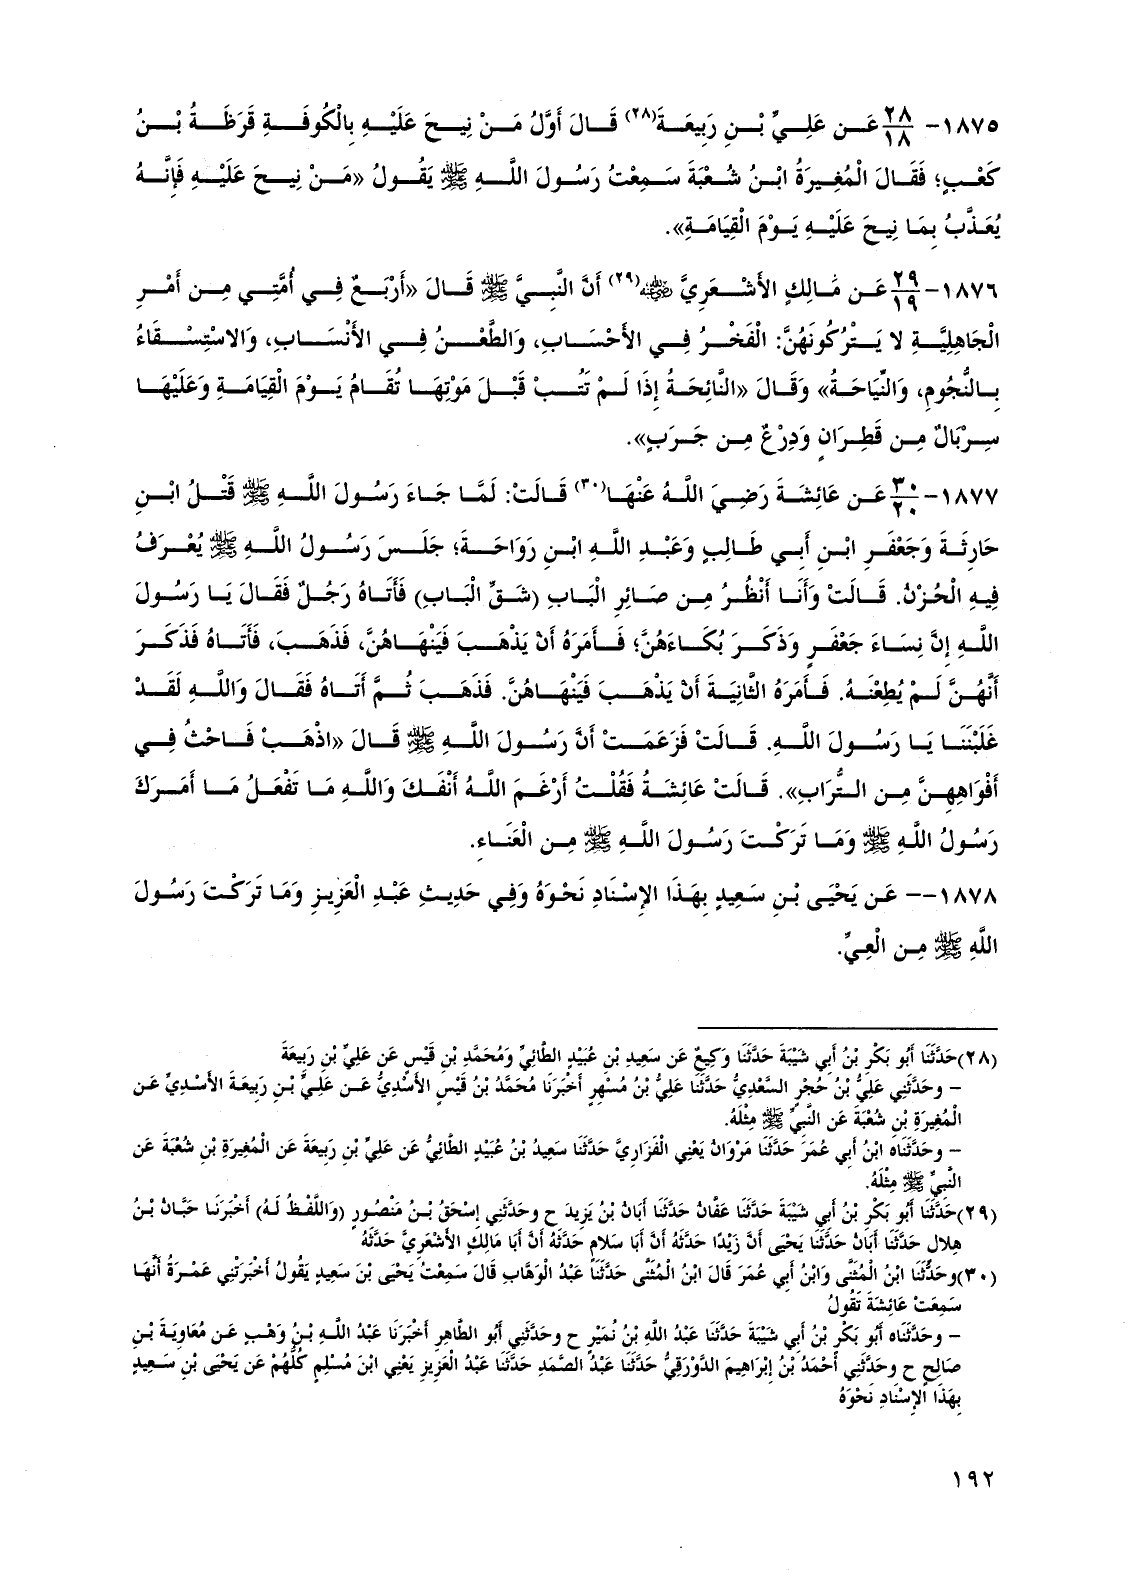 ١٨٧٥- ٢٨/١٨ عَن عَلِيِّ بْنِ رَبِيعَةَ(٢٨) قَالَ أَوَّلُ مَنْ نِيحَ عَلَيْهِ بِالْكُوفَةِ قَرَظَةُ بْنُ
كَعْبٍ؛ فَقَالَ الْمُغِيرَةُ ابْنُ شُعْبَةَ سَمِعْتُ رَسُولَ اللَّهِ ﷺ يَقُولُ «مَنْ نِيحَ عَلَيْهِ فَإِنَّهُ
يُعَذَّبُ بِمَا نِيحَ عَلَيْهِ يَوْمَ الْقِيَامَةِ».
١٨٧٦- ٢٩/١٩ عَن مَالِكٍ الأَشْعَرِيَّ ﵁(٢٩) أَنَّ النَّبِيَّ ﷺ قَالَ «أَرْبَعٌ فِي أُمَّتِي مِن أَمْرِ
الْجَاهِلِيَّةِ لا يَتْرُكُونَهُنَّ: الْفَخْرُ فِي الأَحْسَابِ، وَالطَّعْنُ فِي الأَنْسَابِ، وَالاسْتِسْقَاءُ
بِالنُّجُومِ، وَالنِّيَاحَةُ» وَقَالَ «النَّائِحَةُ إِذَا لَمْ تَتُبْ قَبْلَ مَوْتِهَا تُقَامُ يَوْمَ الْقِيَامَةِ وَعَلَيْهَا
سِرْبَالٌ مِن قَطِرَانٍ وَدِرْعٌ مِن جَرَبٍ».
١٨٧٧- ٣٠/٢٠ عَن عَائِشَةَ رَضِيَ اللَّهُ عَنْهَا(٣٠) قَالَتْ: لَمَّا جَاءَ رَسُولَ اللَّهِ ﷺ قَتْلُ ابْنِ
حَارِثَةَ وَجَعْفَرِ ابْنِ أَبِي طَالِبٍ وَعَبْدِ اللَّهِ ابْنِ رَوَاحَةَ؛ جَلَسَ رَسُولُ اللَّهِ ﷺ يُعْرَفُ
فِيهِ الْحُزْنُ. قَالَتْ وَأَنَا أَنْظُرُ مِن صَائِرِ الْبَابِ (شَقِّ الْبَابِ) فَأَتَاهُ رَجُلٌ فَقَالَ يَا رَسُولَ
اللَّهِ إِنَّ نِسَاءَ جَعْفَرٍ وَذَكَرَ بُكَاءَهُنَّ؛ فَأَمَرَهُ أَنْ يَذْهَبَ فَيَنْهَاهُنَّ، فَذَهَبَ، فَأَتَاهُ فَذَكَرَ
أَنَّهُنَّ لَمْ يُطِعْنَهُ. فَأَمَرَهُ الثَّانِيَةَ أَنْ يَذْهَبَ فَيَنْهَاهُنَّ. فَذَهَبَ ثُمَّ أَتَاهُ فَقَالَ وَاللَّهِ لَقَدْ
غَلَبْنَنَا يَا رَسُولَ اللَّهِ. قَالَتْ فَزَعَمَتْ أَنَّ رَسُولَ اللَّهِ ﷺ قَالَ «اذْهَبْ فَاحْثُ فِي
أَفْوَاهِهِنَّ مِن التُّرَابِ». قَالَتْ عَائِشَةُ فَقُلْتُ أَرْغَمَ اللَّهُ أَنْفَكَ وَاللَّهِ مَا تَفْعَلُ مَا أَمَرَكَ
رَسُولُ اللَّهِ ﷺ وَمَا تَرَكْتَ رَسُولَ اللَّهِ ﷺ مِن الْعَنَاءِ.
١٨٧٨-- عَن يَحْيَى بْنِ سَعِيدٍ بِهَذَا الإِسْنَادِ نَحْوَهُ وَفِي حَدِيثِ عَبْدِ الْعَزِيزِ وَمَا تَرَكْتَ رَسُولَ
اللَّهِ ﷺ مِن الْعِيِّ.
(٢٨)حَدَّثَنَا أَبُو بَكْرِ بْنُ أَبِي شَيْبَةَ حَدَّثَنَا وَكِيعٌ عَن سَعِيدِ بْنِ عُبَيْدٍ الطَّائِيِّ وَمُحَمَّدِ بْنِ قَيْسٍ عَن عَلِيِّ بْنِ رَبِيعَةَ
– وحَدَّثَنِي عَلِيُّ بْنُ حُجْرٍ السَّعْدِيُّ حَدَّثَنَا عَلِيُّ بْنُ مُسْهِرٍ أَخْبَرَنَا مُحَمَّدُ بْنُ قَيْسٍ الأَسْدِيُّ عَن عَلِيِّ بْنِ رَبِيعَةَ الأَسْدِيِّ عَن
الْمُغِيرَةِ بْنِ شُعْبَةَ عَن النَّبِيِّ ﷺ مِثْلَهُ.
– وحَدَّثَنَاه ابْنُ أَبِي عُمَرَ حَدَّثَنَا مَرْوَانُ يَعْنِي الْفَزَارِيَّ حَدَّثَنَا سَعِيدُ بْنُ عُبَيْدٍ الطَّائِيُّ عَن عَلِيِّ بْنِ رَبِيعَةَ عَن الْمُغِيرَةِ بْنِ شُعْبَةَ عَن
النَّبِيِّ ﷺ مِثْلَهُ.
(٢٩)حَدَّثَنَا أَبُو بَكْرِ بْنُ أَبِي شَيْبَةَ حَدَّثَنَا عَفَّانُ حَدَّثَنَا أَبَانُ بْنُ يَزِيدَ ح وحَدَّثَنِي إِسْحَقُ بْنُ مَنْصُورٍ (وَاللَّفْظُ لَهُ) أَخْبَرَنَا حَبَّانُ بْنُ
هِلالٍ حَدَّثَنَا أَبَانُ حَدَّثَنَا يَحْيَى أَنَّ زَيْدًا حَدَّثَهُ أَنَّ أَبَا سَلامٍ حَدَّثَهُ أَنَّ أَبَا مَالِكٍ الأَشْعَرِيَّ حَدَّثَهُ
(٣٠)وحَدَّثَنَا ابْنُ الْمُثَنَّى وَابْنُ أَبِي عُمَرَ قَالَ ابْنُ الْمُثَنَّى حَدَّثَنَا عَبْدُ الْوَهَّابِ قَالَ سَمِعْتُ يَحْيَى بْنَ سَعِيدٍ يَقُولُ أَخْبَرَتْنِي عَمْرَةُ أَنَّهَا
سَمِعَتْ عَائِشَةَ تَقُولُ
– وحَدَّثَنَاه أَبُو بَكْرِ بْنُ أَبِي شَيْبَةَ حَدَّثَنَا عَبْدُ اللَّهِ بْنُ نُمَيْرٍ ح وحَدَّثَنِي أَبُو الطَّاهِرِ أَخْبَرَنَا عَبْدُ اللَّهِ بْنُ وَهْبٍ عَن مُعَاوِيَةَ بْنِ
صَالِحٍ ح وحَدَّثَنِي أَحْمَدُ بْنُ إِبْرَاهِيمَ الدَّوْرَقِيُّ حَدَّثَنَا عَبْدُ الصَّمَدِ حَدَّثَنَا عَبْدُ الْعَزِيزِ يَعْنِي ابْنَ مُسْلِمٍ كُلُّهُمْ عَن يَحْيَى بْنِ سَعِيدٍ
بِهَذَا الإِسْنَادِ نَحْوَهُ
١٩٢